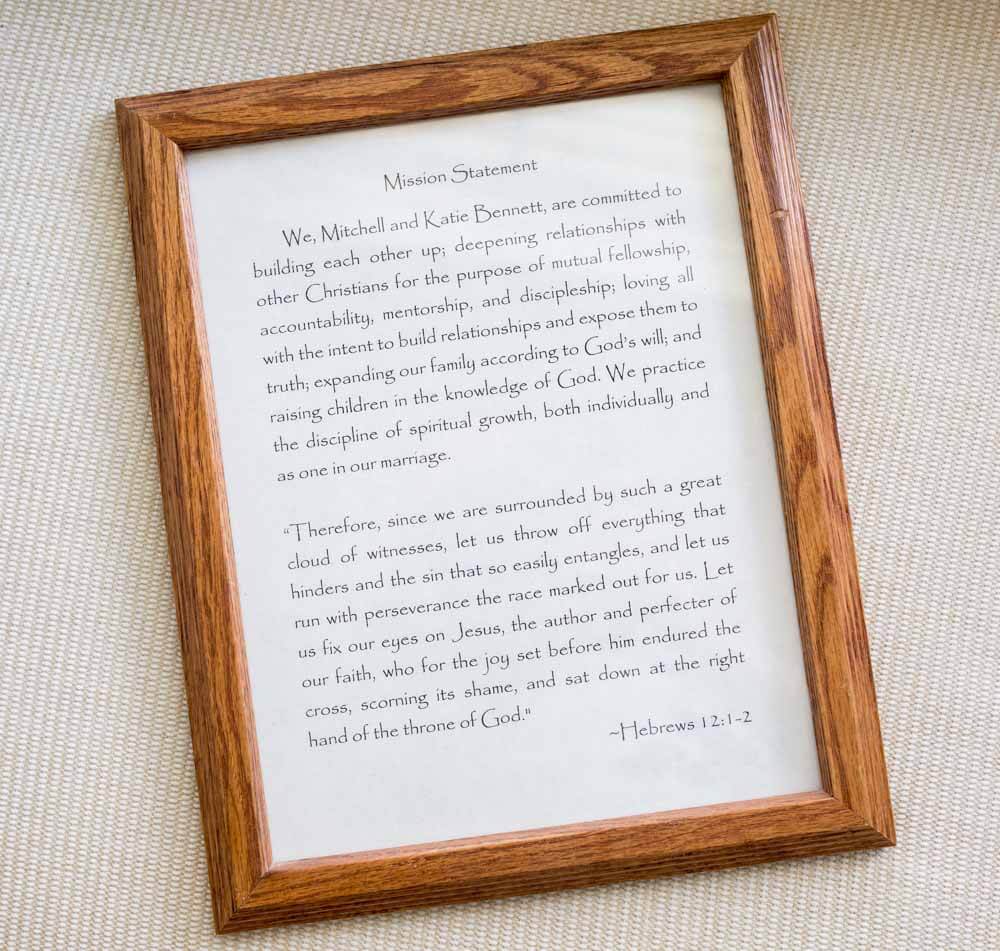 Mission Statement
We, Mitchell and Katie Bennett, are committed to
building each other up; deepening relationships with
other Christians for the purpose of mutual fellowship,
accountability, mentorship, and discipleship; loving all
with the intent to build relationships and expose them to
truth; expanding our family according to God's will; and
raising children in the knowledge of God. We practice
the discipline of spiritual growth, both individually and
as one in our marriage.
“Therefore, since we are surrounded by such a great
cloud of witnesses, let us throw off everything that
hinders and the sin that so easily entangles, and let us
run with perseverance the race marked out for us. Let
us fix our eyes on Jesus, the author and perfecter of
our faith, who for the joy set before him endured the
cross, scorning its shame, and sat down at the right
hand of the throne of God."
~Hebrews 12:1-2